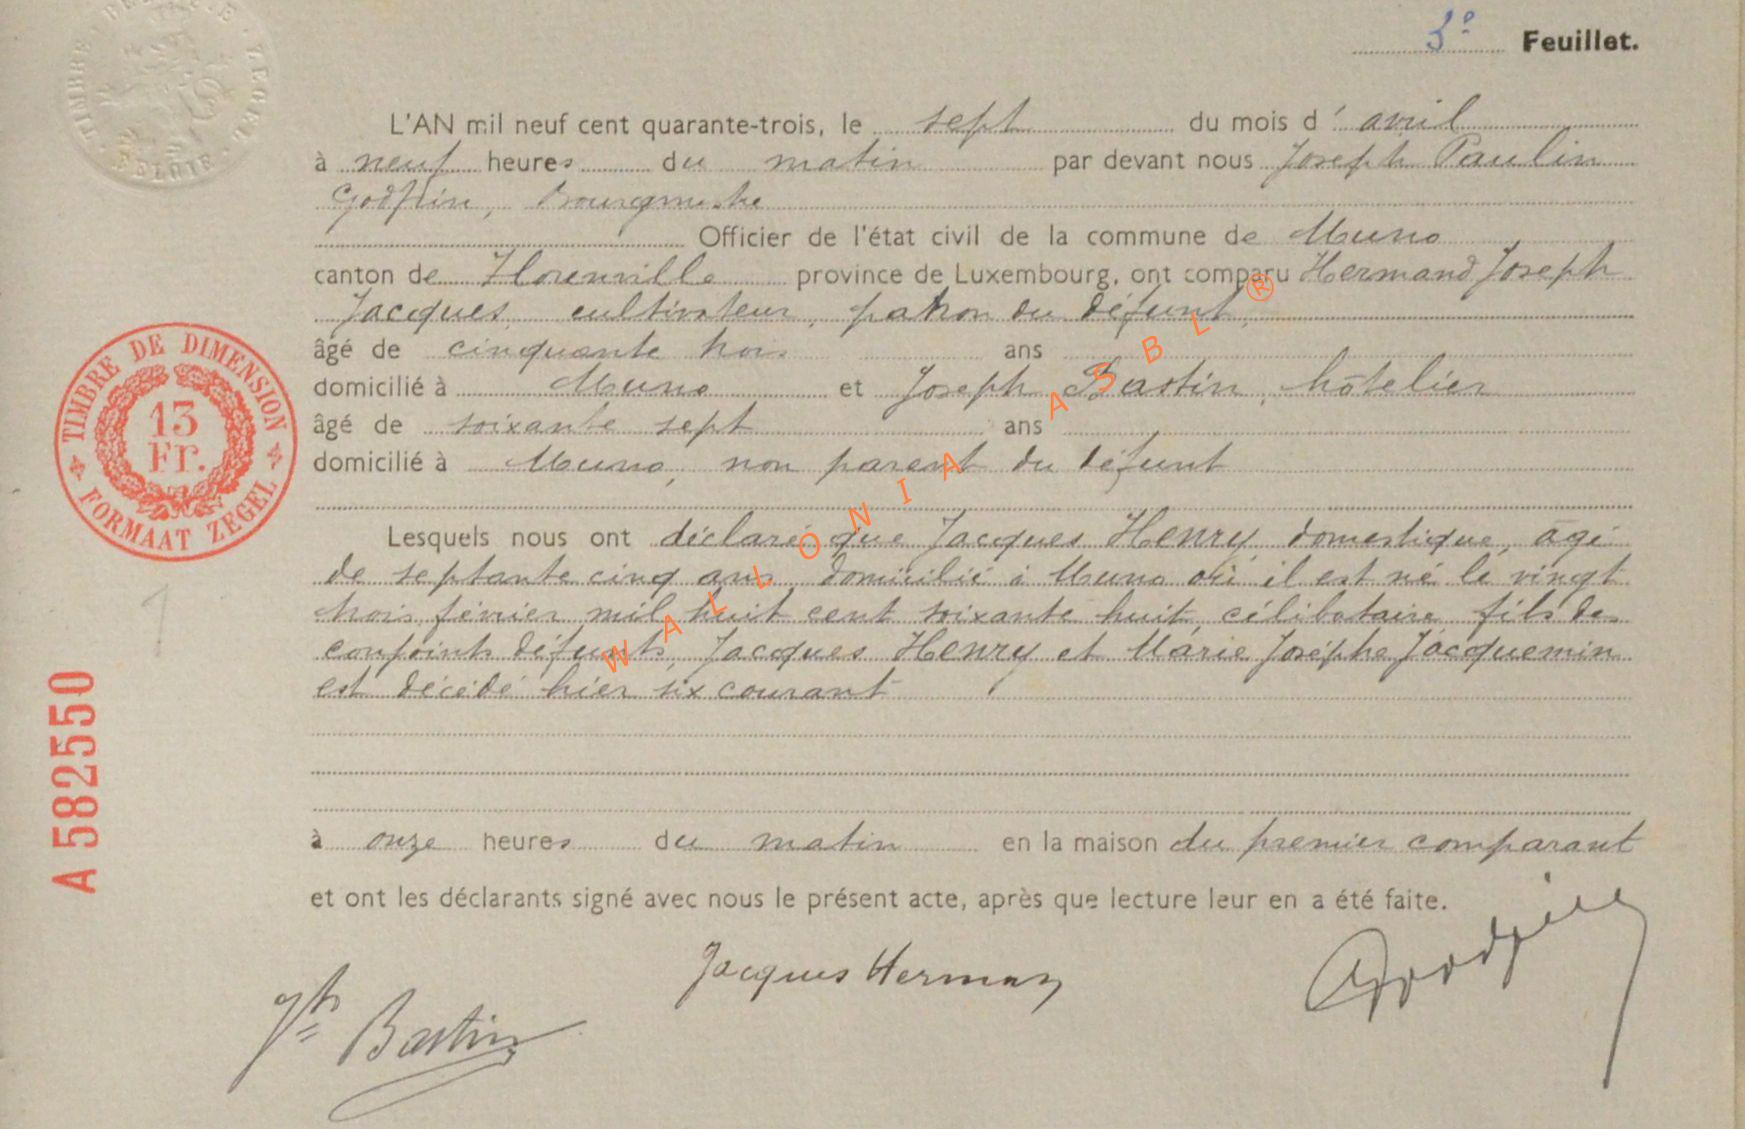 3º Feuillet.
TIMBRE BELGIQUE ZEGEL BELGIE
L'AN mil neuf cent quarante-trois, le sept du mois d'avril
à neuf heures du matin par devant nous Joseph Paulin
Godfrin, Bourgmestre
Officier de l'état civil de la commune de Muno
canton de Florenville province de Luxembourg, ont comparu Hermand Joseph
Jacques, cultivateur, patron du défunt,
âgé de cinquante trois ans
domicilié à Muno et Joseph Bastin, hôtelier
âgé de soixante sept ans
domicilié à Muno, non parent du défunt
TIMBRE DE DIMENSION
13
Fr.
FORMAAT ZEGEL
Lesquels nous ont déclaré que Jacques Henry, domestique, âgé
de septante cinq ans domicilié à Muno où il est né le vingt
trois février mil huit cent soixante huit, célibataire, fils de
conjoints défunts, Jacques Henry et Marie Josèphe Jacquemin
est décédé hier six courant
A 582550
à onze heures du matin en la maison du premier comparant
et ont les déclarants signé avec nous le présent acte, après que lecture leur en a été faite.
Jph Bastin
Jacques Herman
Godfrin
WALLONIA ASBL®